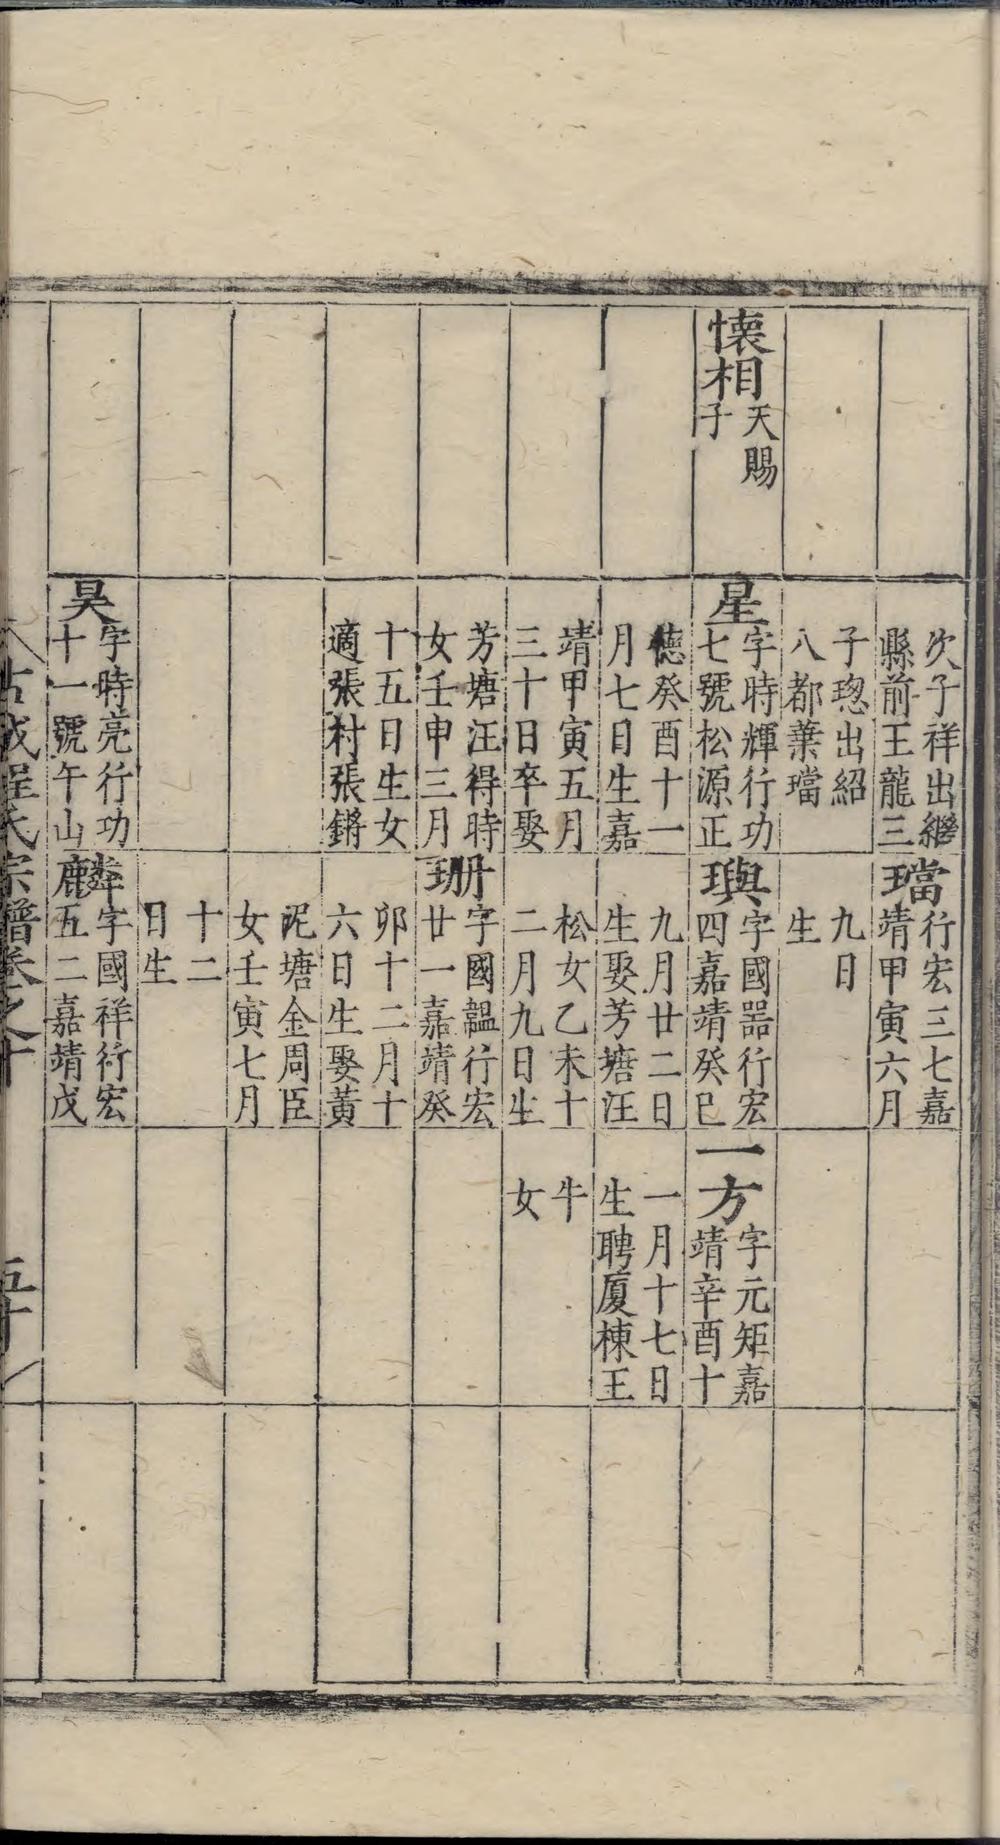 懐相
天賜
子
次子祥出繼
縣前王龍三
子璁出紹
八都葉璫
星
字時輝行功
七號松源正
德癸酉十一
月七日生嘉
靖甲寅五月
三十日卒娶
芳塘汪得時
女壬申三月
十五日生女
適張村張鏘
昊
字時亮行功
十一號午山
璫
行宏三七嘉
靖甲寅六月
九日
生
璵
字國器行宏
四嘉靖癸巳
九月廿二日
生娶芳塘汪
松女乙未十
二月九日生
珊
字國韞行宏
廿一嘉靖癸
卯十二月十
六日生娶黃
泥塘金周臣
女壬寅七月
十二
日生
麟
字國祥行宏
五二嘉靖戊
一方
字元矩嘉
靖辛酉十
一月十七日
生聘廈棟王
牛
女
程氏宗譜卷之十
五十